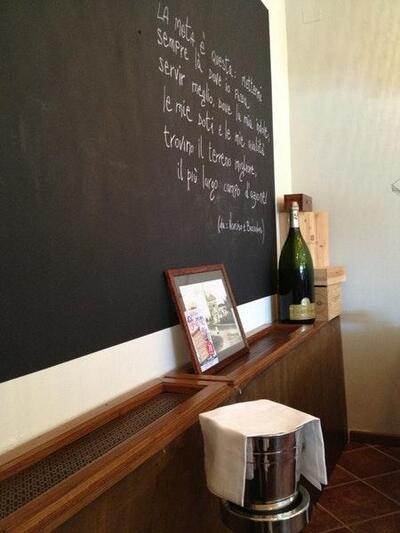 LA META è questa: mettermi
sempre là dove io possa
servir meglio, dove la mia indole,
le mie doti e le mie qualità
trovino il terreno migliore,
il più largo campo d'azione!
(da: Narciso e Boccadoro)